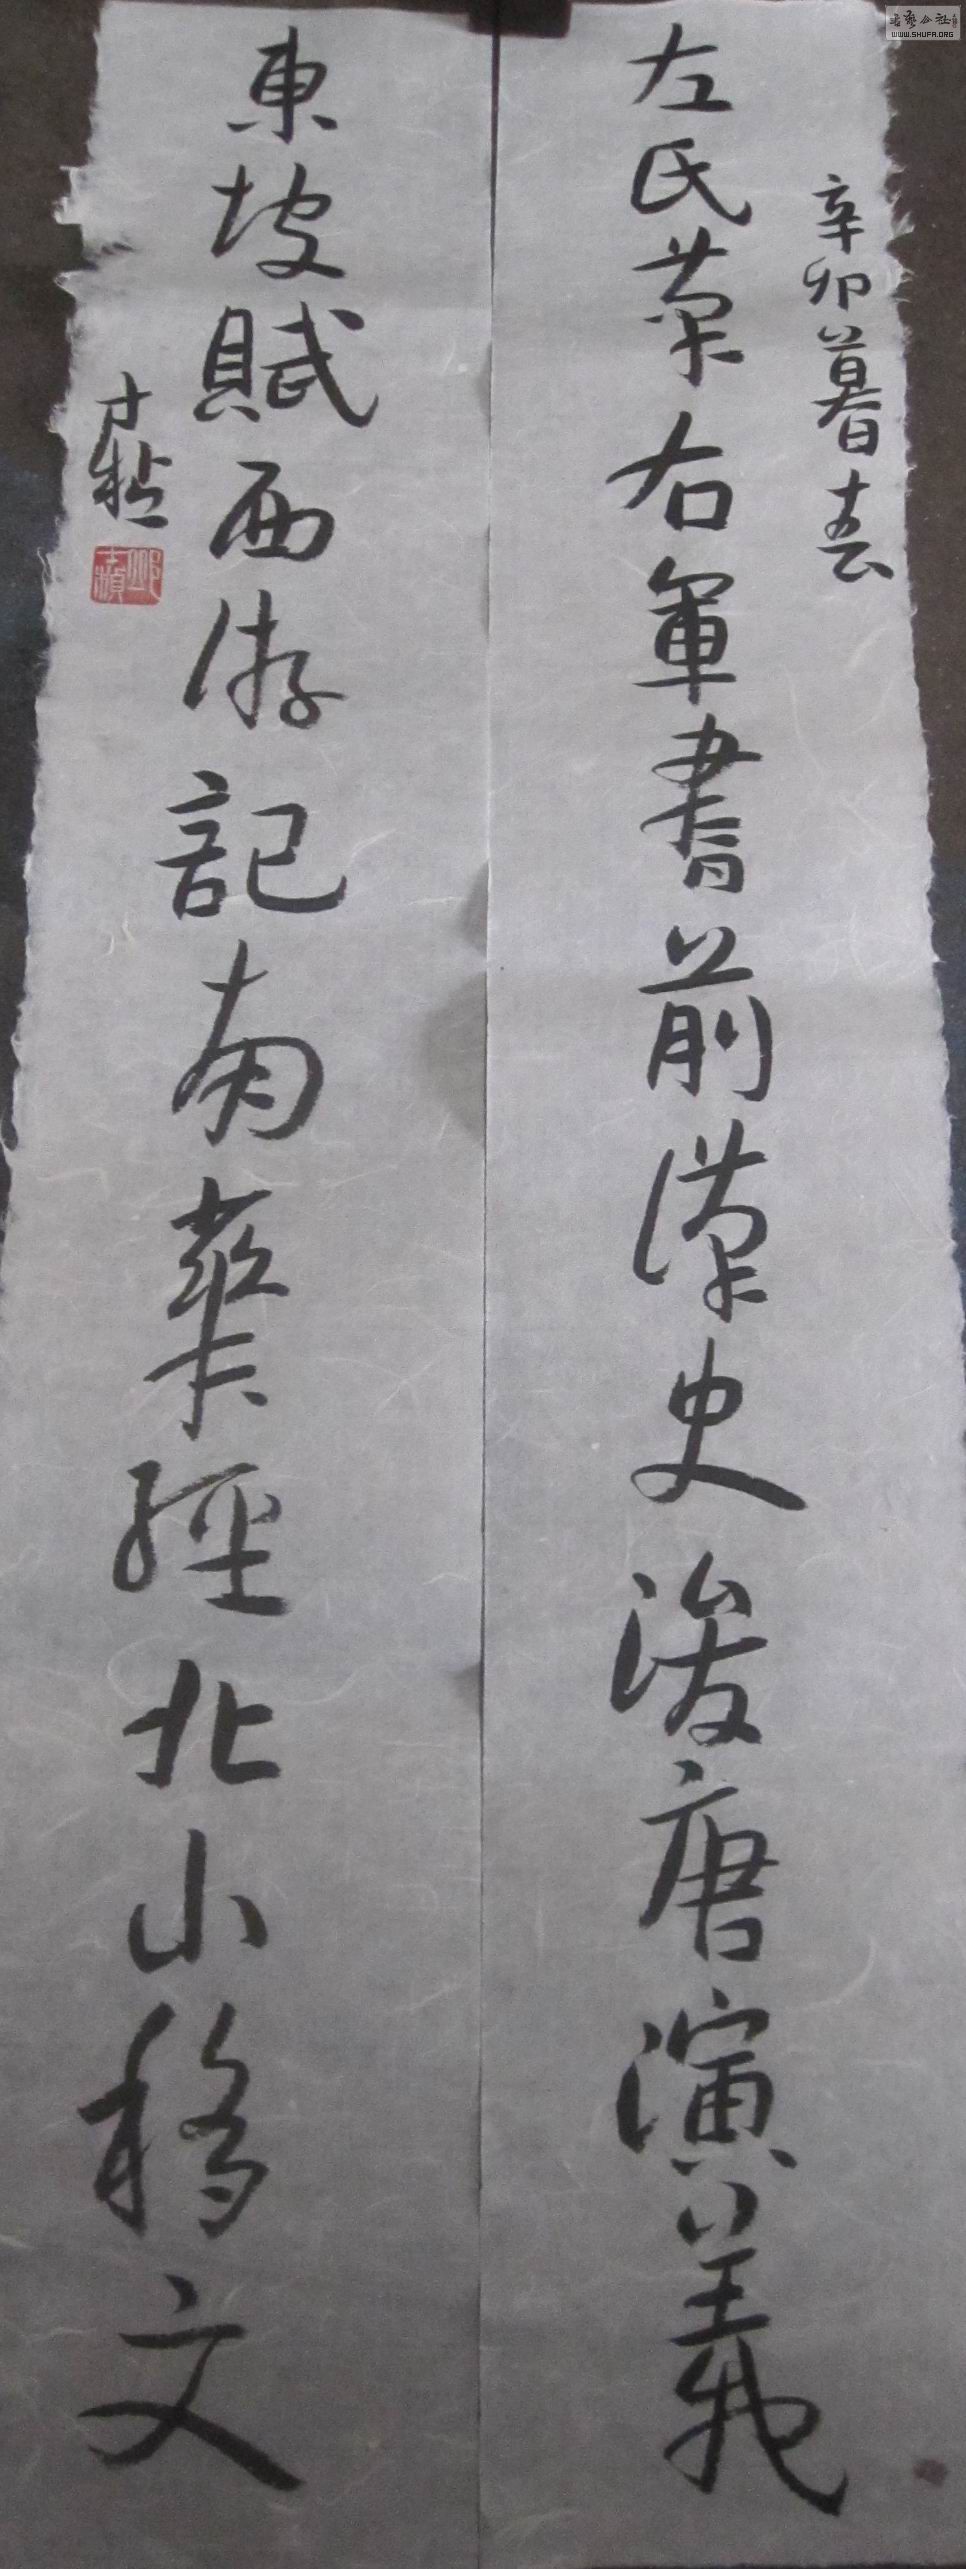 書藝公社
WWW.SHUFA.ORG
辛卯暮春
左氏策右軍書前漢史後唐演義
東坡賦西游記南華經北山移文